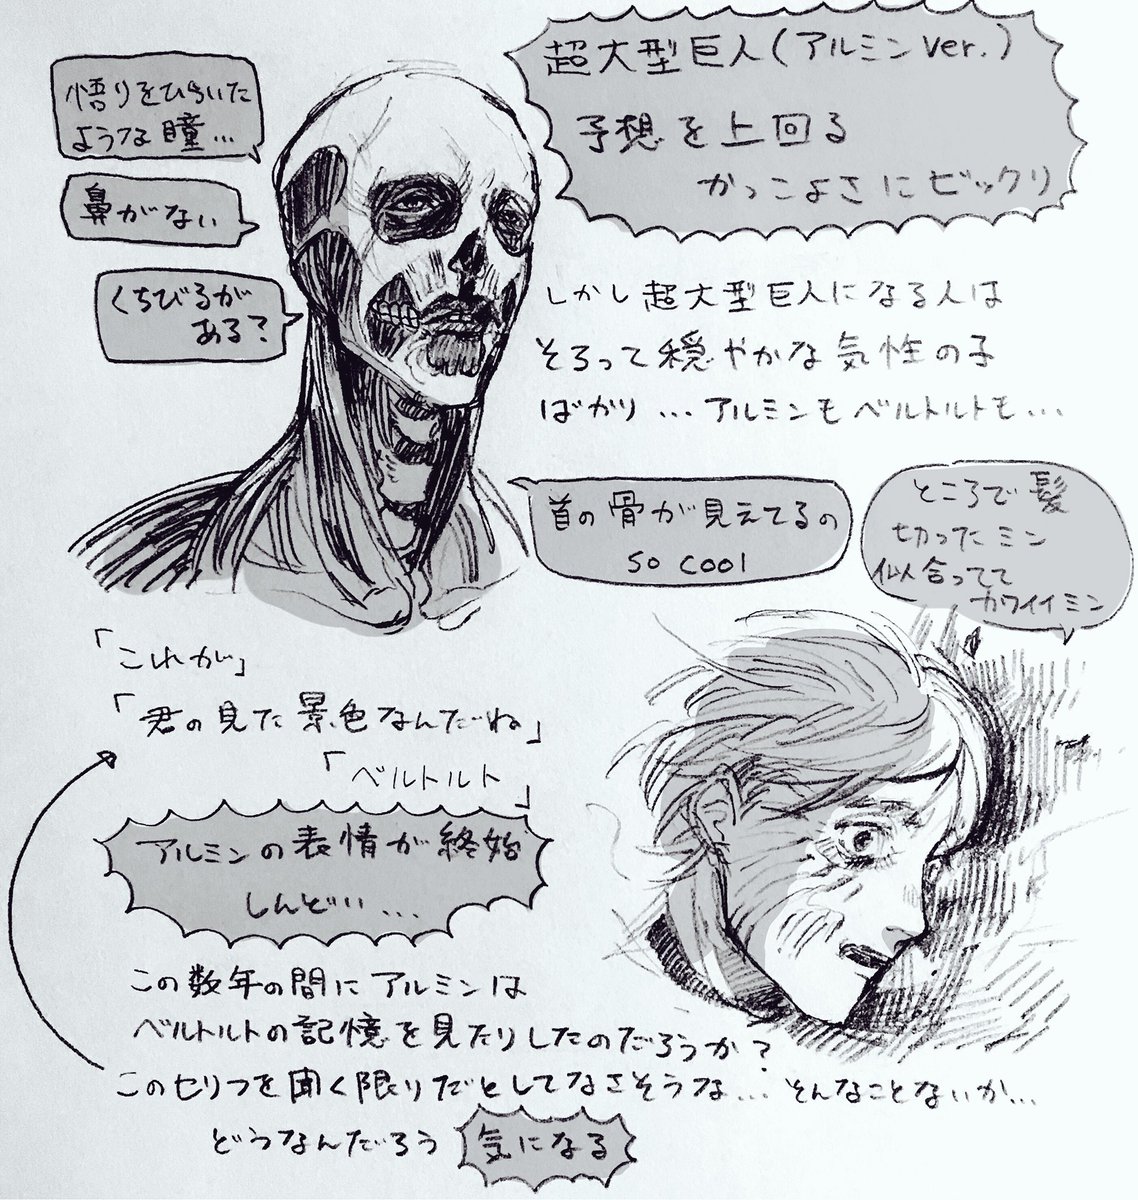 超大型巨人(アルミンver.)
予想を上回る
かっこよさにビックリ
悟りをひらいた
ような瞳…
鼻がない
くちびるが
ある?
しかし超大型巨人になる人は
そろって穏やかな気性の子
ばかり…アルミンもベルトルトも…
首の骨が見えてるの
so cool
ところで髪
切ったミン
似合ってて
カワイイミン
「これが」
「君の見た景色なんだね」
「ベルトルト」
アルミンの表情が終始
しんどい…
この数年の間にアルミンは
ベルトルトの記憶を見たりしたのだろうか?
このセリフを聞く限りだとしてなさそうな…そんなことないか…
どうなんだろう 気になる